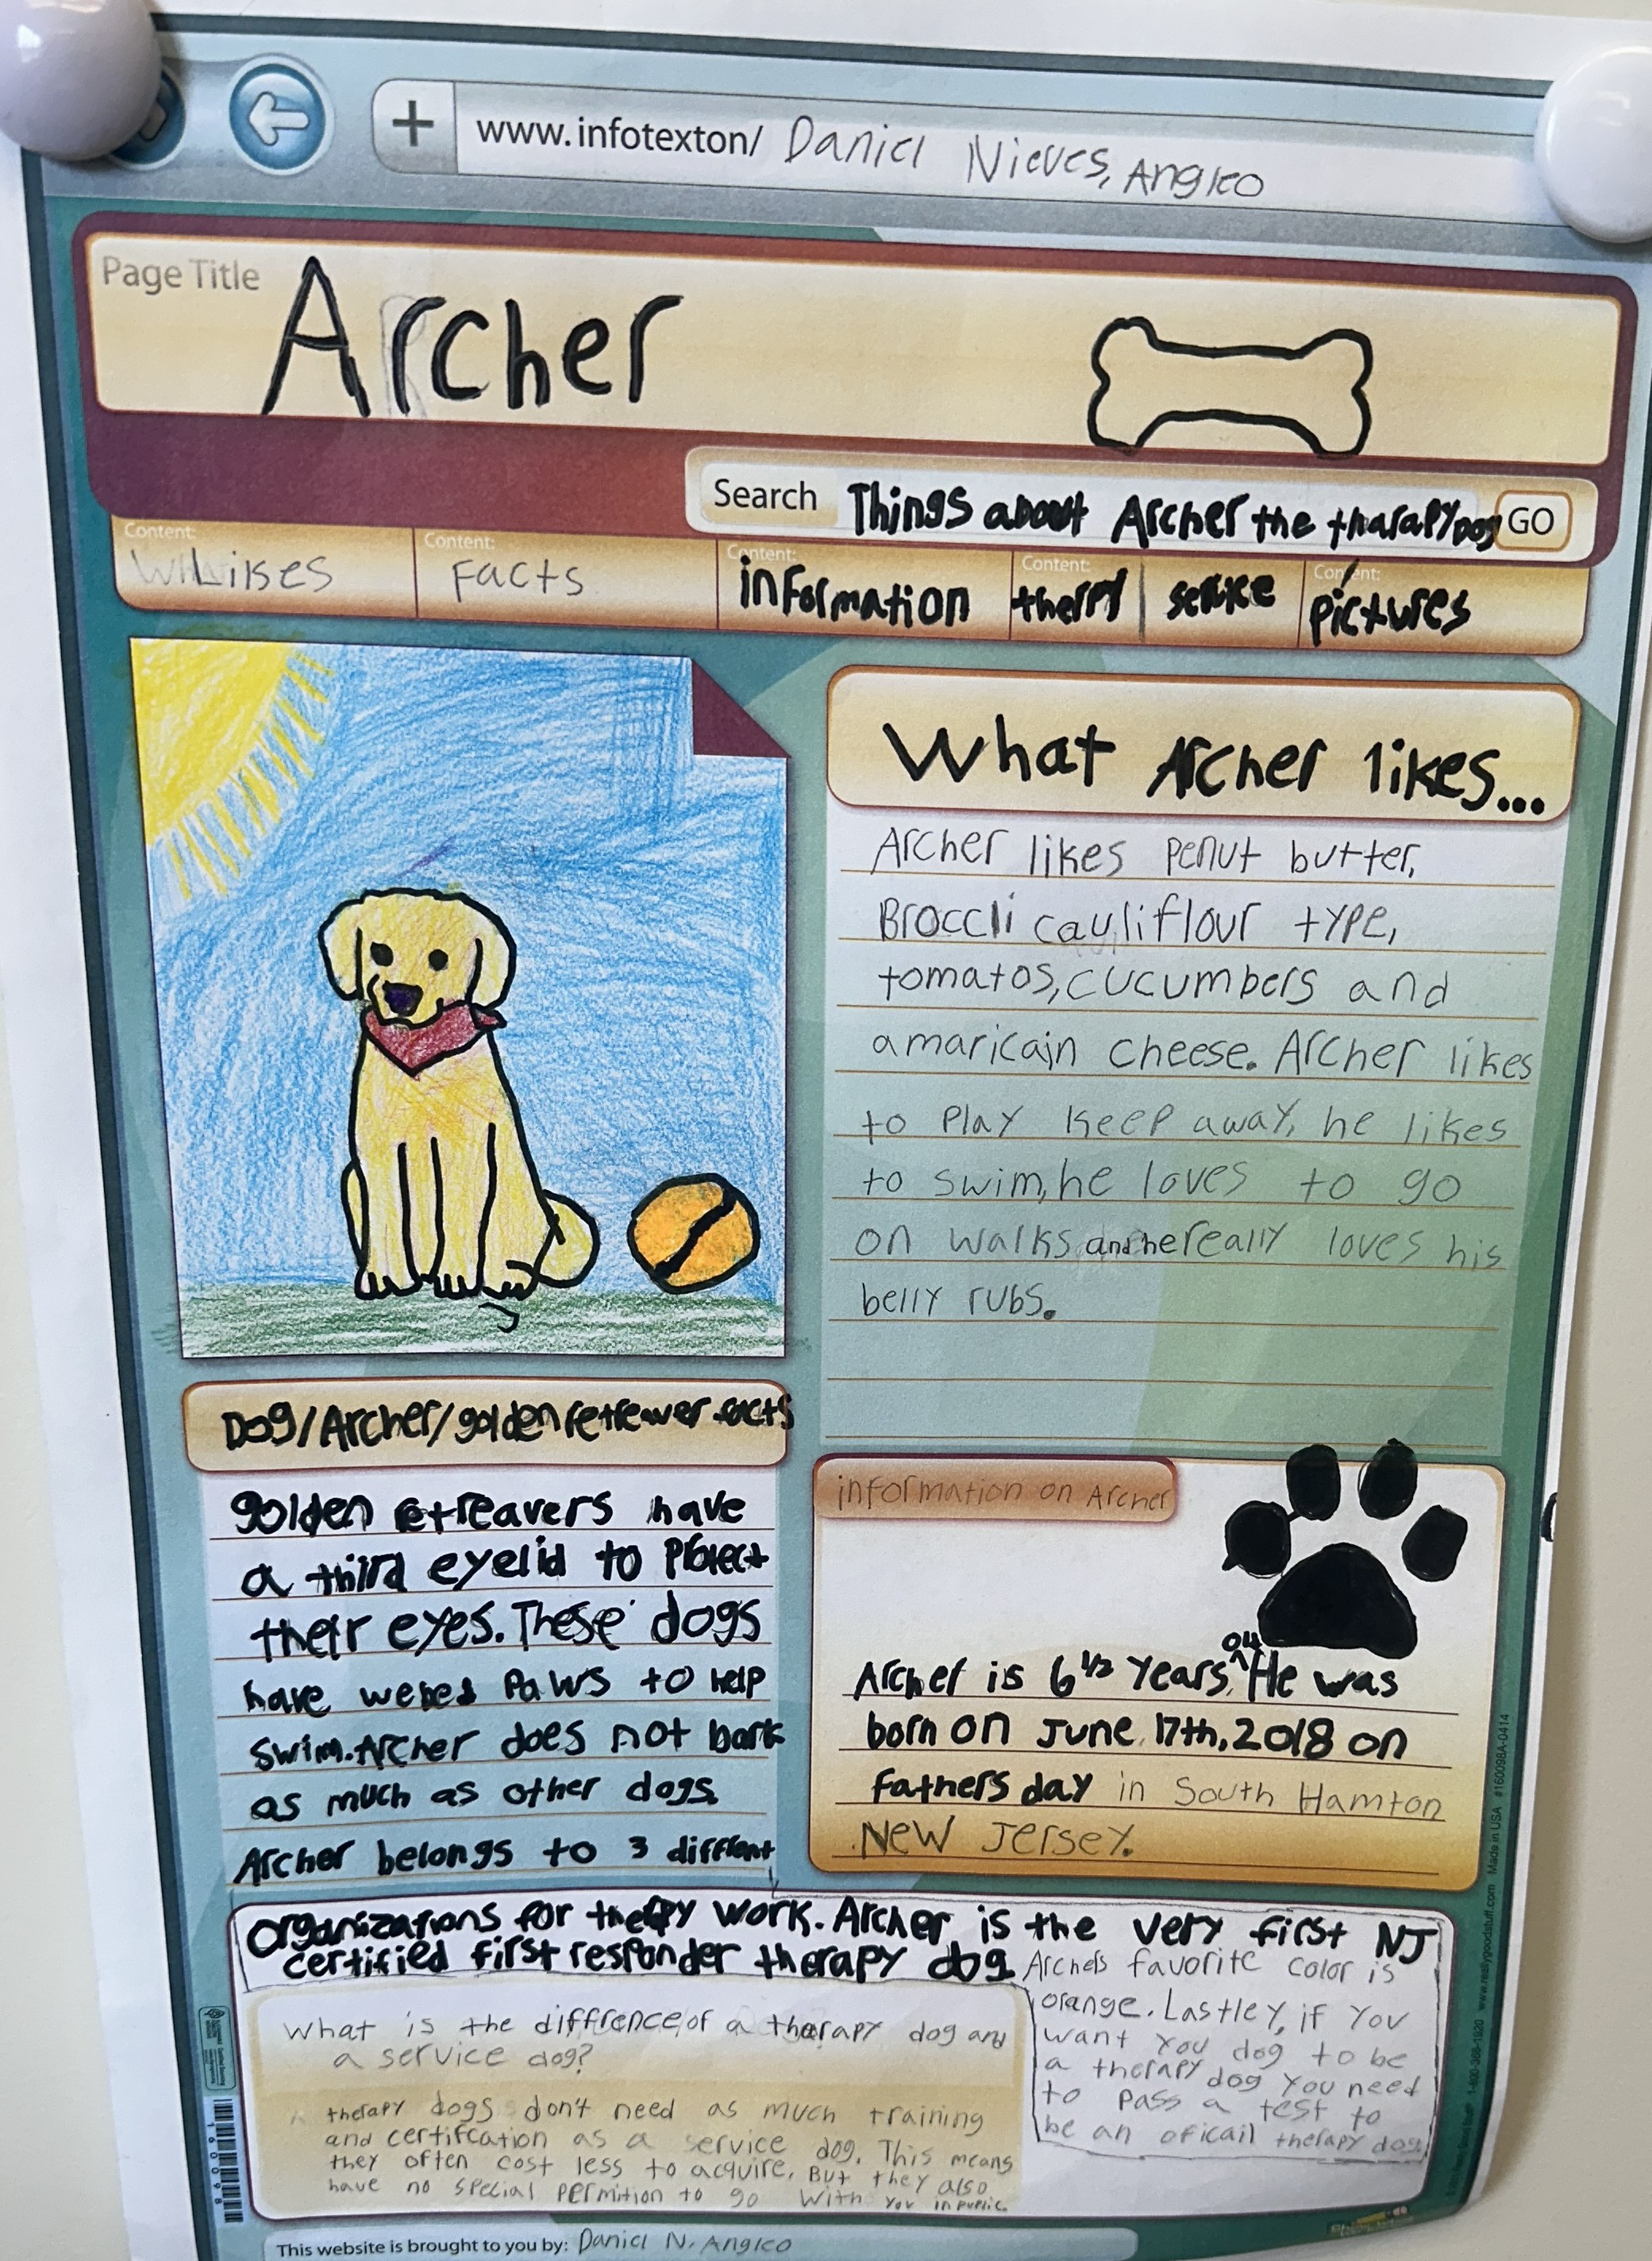 www.infotexton/ Daniel Nieves, Angleo
Page Title
Archer
Search Things about Archer the tharapy Dog GO
Content: Likes
Content: Facts
Content: information
Content: therpy
service
Content: pictures
What Archer likes...
Archer likes penut butter,
Broccli cauliflour type,
tomatos, cucumbers and
amaricain cheese. Archer likes
to play keep away, he likes
to swim, he loves to go
on walks and he really loves his
belly rubs.
Dog/Archer/golden retrewer facts
golden retreavers have
a third eyelid to protect
their eyes. These dogs
have webed paws to help
swim. Archer does not bark
as much as other dogs.
Archer belongs to 3 diffrent
organizations for therpy work. Archer is the very first NJ
certified first responder therapy dog.
Archers favorite color is
orange. Lastley, if you
want you dog to be
a therapy dog you need
to pass a test to
be an oficail therapy dog.
information on Archer
Archer is 6 1/2 years ^old. He was
born on June, 17th, 2018 on
fathers day in South Hamton
New Jersey.
What is the diffrence of a therapy dog and
a service dog?
therapy dogs don't need as much training
and certifcation as a service dog. This means
they often cost less to acquire. But they also
have no special permition to go with you in public.
This website is brought to you by: Daniel N, Angleo
160098
www.reallygoodstuff.com Made in USA #160098A-0414
1-800-366-1920